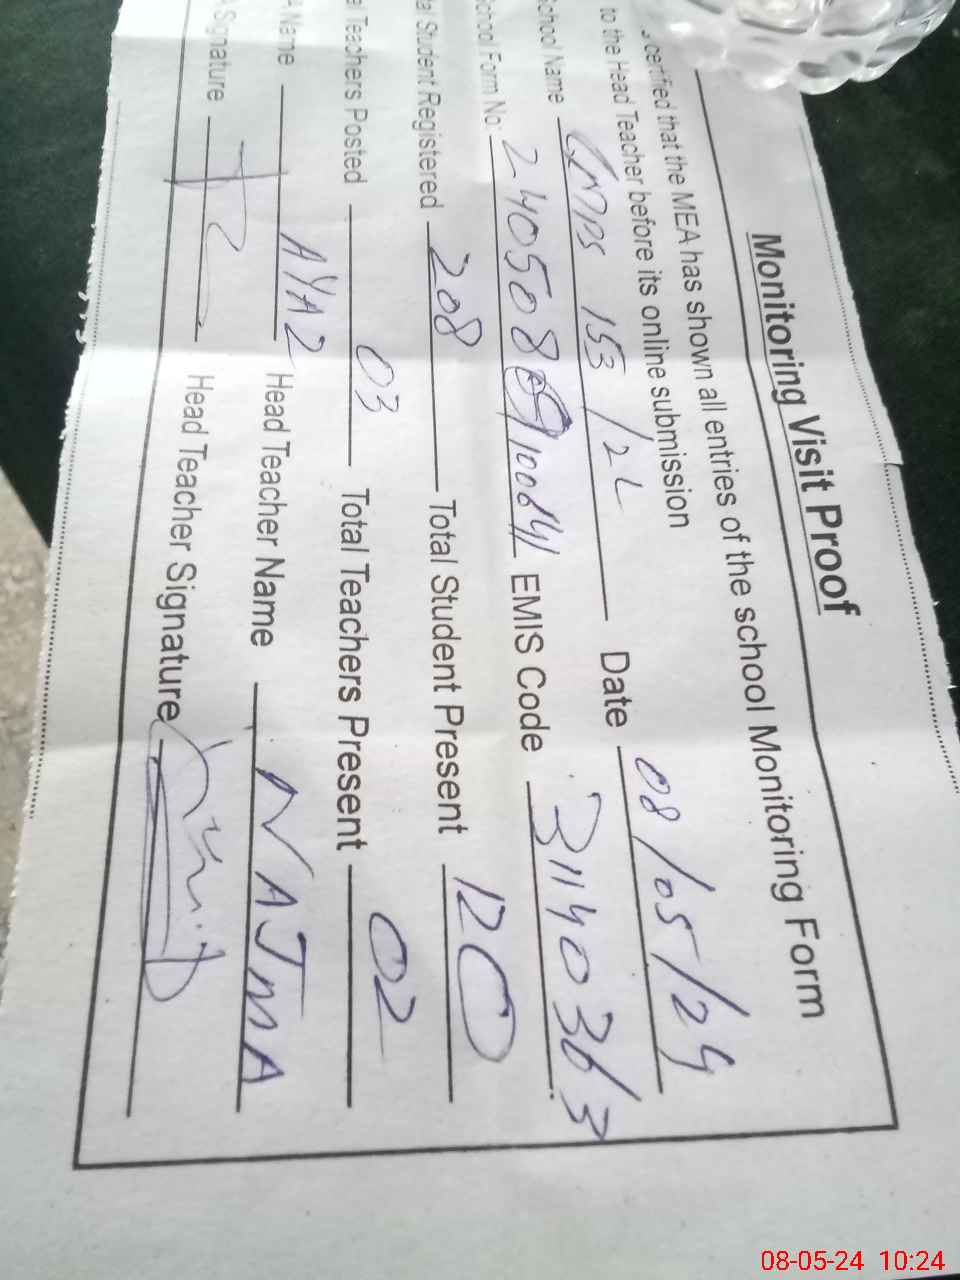 Monitoring Visit Proof
certified that the MEA has shown all entries of the school Monitoring Form
to the Head Teacher before its online submission
School Name GMPS 153/2L Date 08/05/24
School Form No: EMIS Code 31140363
Student Registered 208 Total Student Present 120
Teachers Posted 03 Total Teachers Present 02
A Name AYAZ Head Teacher Name NAJMA
A Signature Head Teacher Signature
08-05-24 10:24